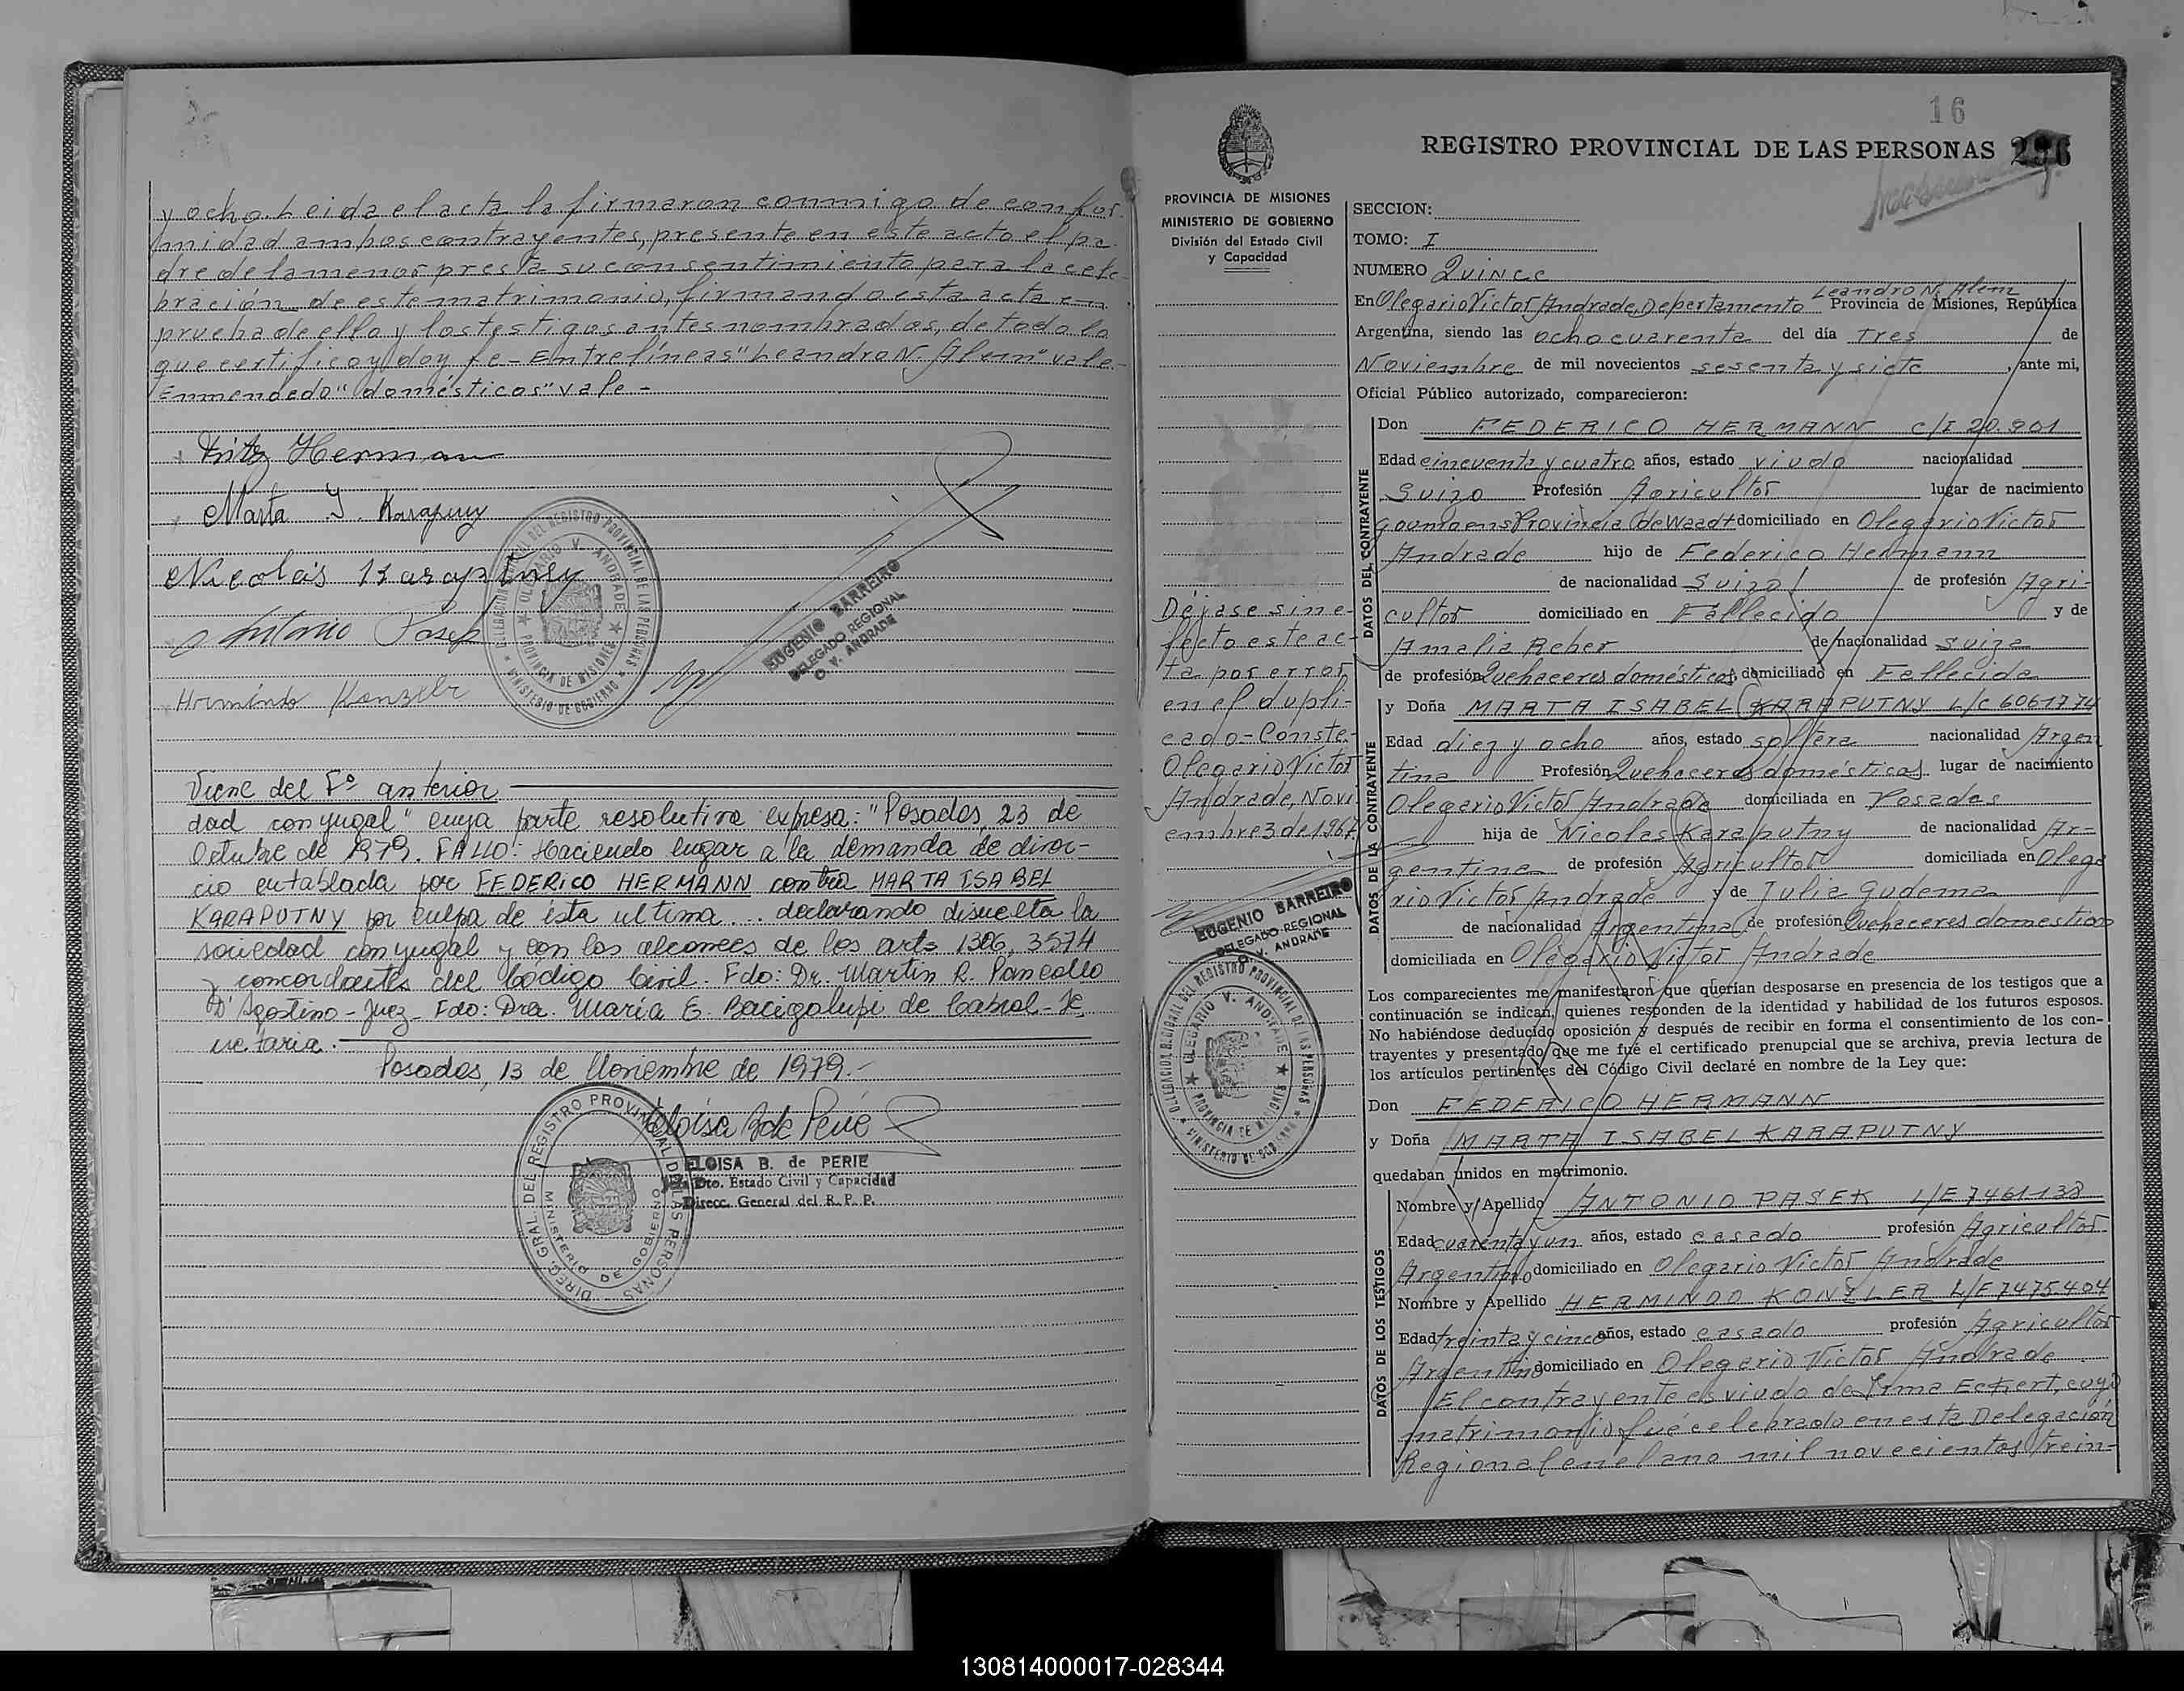 y ocho. Leida el acta la firmaron conmigo de confor-
midad ambos contrayentes, presente en este acto el pa-
dre de la menor presta su consentimiento para la cele-
bración de este matrimonio, firmando esta acta en
prueba de ello y los testigos antes nombrados, de todo lo
que certifico y doy fe - Entrelíneas "Leandro N. Alem" vale.
Enmendado "domésticos" vale -
Fritz Herman
Marta I. Karaputny
Nicolás Karaputny
Antonio Pasek
Hermindo Konzler
DELEGACION REGIONAL DEL REGISTRO PROVINCIAL DE LAS PERSONAS
OLEGARIO V. ANDRADE
PROVINCIA DE MISIONES
MINISTERIO DE GOBIERNO
EUGENIO BARREIRO
DELEGADO REGIONAL
O. V. ANDRADE
Viene del Fº anterior
dad conyugal" cuya parte resolutiva expresa: "Posadas, 23 de
Octubre de 1979. FALLO: Haciendo lugar a la demanda de divor-
cio entablada por FEDERICO HERMANN contra MARTA ISABEL
KARAPUTNY por culpa de ésta ultima... declarando disuelta la
sociedad conyugal y con los alcances de los arts 1306, 3574
y concordantes del Codigo Civil. Fdo: Dr. Martin R. Pancallo
D'Agostino - Juez - Fdo: Dra. María E. Bacigalupi de Cabral - Se
cretaria.
Posadas, 13 de Noviembre de 1979.-
Eloisa B de Perié
ELOISA B. de PERIE
Jefa Dto. Estado Civil y Capacidad
Direcc. General del R. P. P.
DIREC. GRAL. DEL REGISTRO PROVINCIAL DE LAS PERSONAS
MINISTERIO DE GOBIERNO
16
REGISTRO PROVINCIAL DE LAS PERSONAS
PROVINCIA DE MISIONES
MINISTERIO DE GOBIERNO
División del Estado Civil
y Capacidad
SECCION:
TOMO: I
NUMERO Quince
Leandro N. Alem
En Olegario Victor Andrade, Departamento Provincia de Misiones, República
Argentina, siendo las ocho cuarenta del día Tres de
Noviembre de mil novecientos sesenta y siete, ante mi,
Oficial Público autorizado, comparecieron:
DATOS DEL CONTRAYENTE
Don FEDERICO HERMANN C/I 20.901
Edad cincuenta y cuatro años, estado viudo nacionalidad
Suizo Profesión Agricultor lugar de nacimiento
Provincia de Waadt domiciliado en Olegario Victor
Andrade hijo de Federico Hermann
de nacionalidad Suizo de profesión Agri-
cultor domiciliado en Fallecido y de
Amalia Reber de nacionalidad Suiza
de profesión Quehaceres domésticos domiciliado en Fallecida
DATOS DE LA CONTRAYENTE
y Doña MARTA ISABEL KARAPUTNY L/C 6061774
Edad diez y ocho años, estado soltera nacionalidad Argen
tina Profesión Quehaceres domésticos lugar de nacimiento
Olegario Victor Andrade domiciliada en Posadas
hija de Nicolas Karaputny de nacionalidad Ar-
gentina de profesión Agricultor domiciliada en Olega
rio Victor Andrade y de Julia Gudema
de nacionalidad Argentina de profesión Quehaceres domesticos
domiciliada en Olegario Victor Andrade
Los comparecientes me manifestaron que querían desposarse en presencia de los testigos que a
continuación se indican, quienes responden de la identidad y habilidad de los futuros esposos.
No habiéndose deducido oposición y después de recibir en forma el consentimiento de los con-
trayentes y presentado que me fué el certificado prenupcial que se archiva, previa lectura de
los artículos pertinentes del Código Civil declaré en nombre de la Ley que:
Don FEDERICO HERMANN
y Doña MARTA ISABEL KARAPUTNY
quedaban unidos en matrimonio.
DATOS DE LOS TESTIGOS
Nombre y Apellido ANTONIO PASEK L/E 7461138
Edad cuarenta y un años, estado casado profesión Agricultor
Argentino domiciliado en Olegario Victor Andrade
Nombre y Apellido HERMINDO KONZLER L/E 7475404
Edad treinta y cinco años, estado casado profesión Agricultor
Argentino domiciliado en Olegario Victor Andrade
El contrayente es viudo de Irma Eckert, cuyo
matrimonio fué celebrado en esta Delegación
Regional en el año mil novecientos trein-
Déjase sin e-
fecto este ac-
ta por error
en el dupli-
cado - Conste.
Olegario Victor
Andrade, Novi
embre 3 de 1967
EUGENIO BARREIRO
DELEGADO REGIONAL
O. V. ANDRADE
DELEGACION REGIONAL DEL REGISTRO PROVINCIAL DE LAS PERSONAS
OLEGARIO V. ANDRADE
PROVINCIA DE MISIONES
MINISTERIO DE GOBIERNO
130814000017-028344